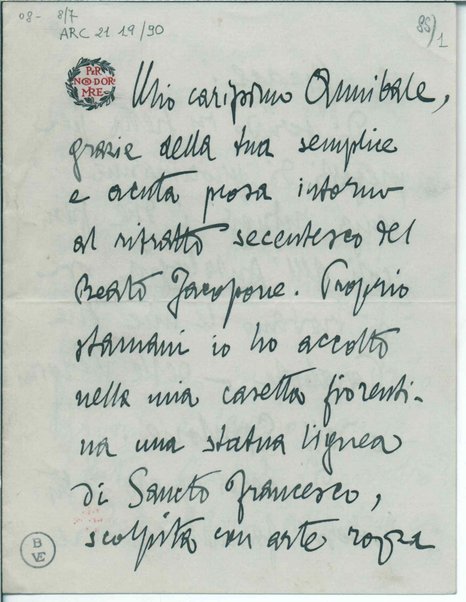 08- 8/7
ARC 21 19/90
88/1
PER
NON DOR
MIRE
Mio carissimo Annibale,
grazie della tua semplice
e acuta prosa intorno
al ritratto secentesco del
Beato Jacopone. Proprio
stamani io ho accolto
nella mia casetta fiorenti-
na una statua lignea
di Sancto Francesco,
scolpita con arte rozza
B
VE